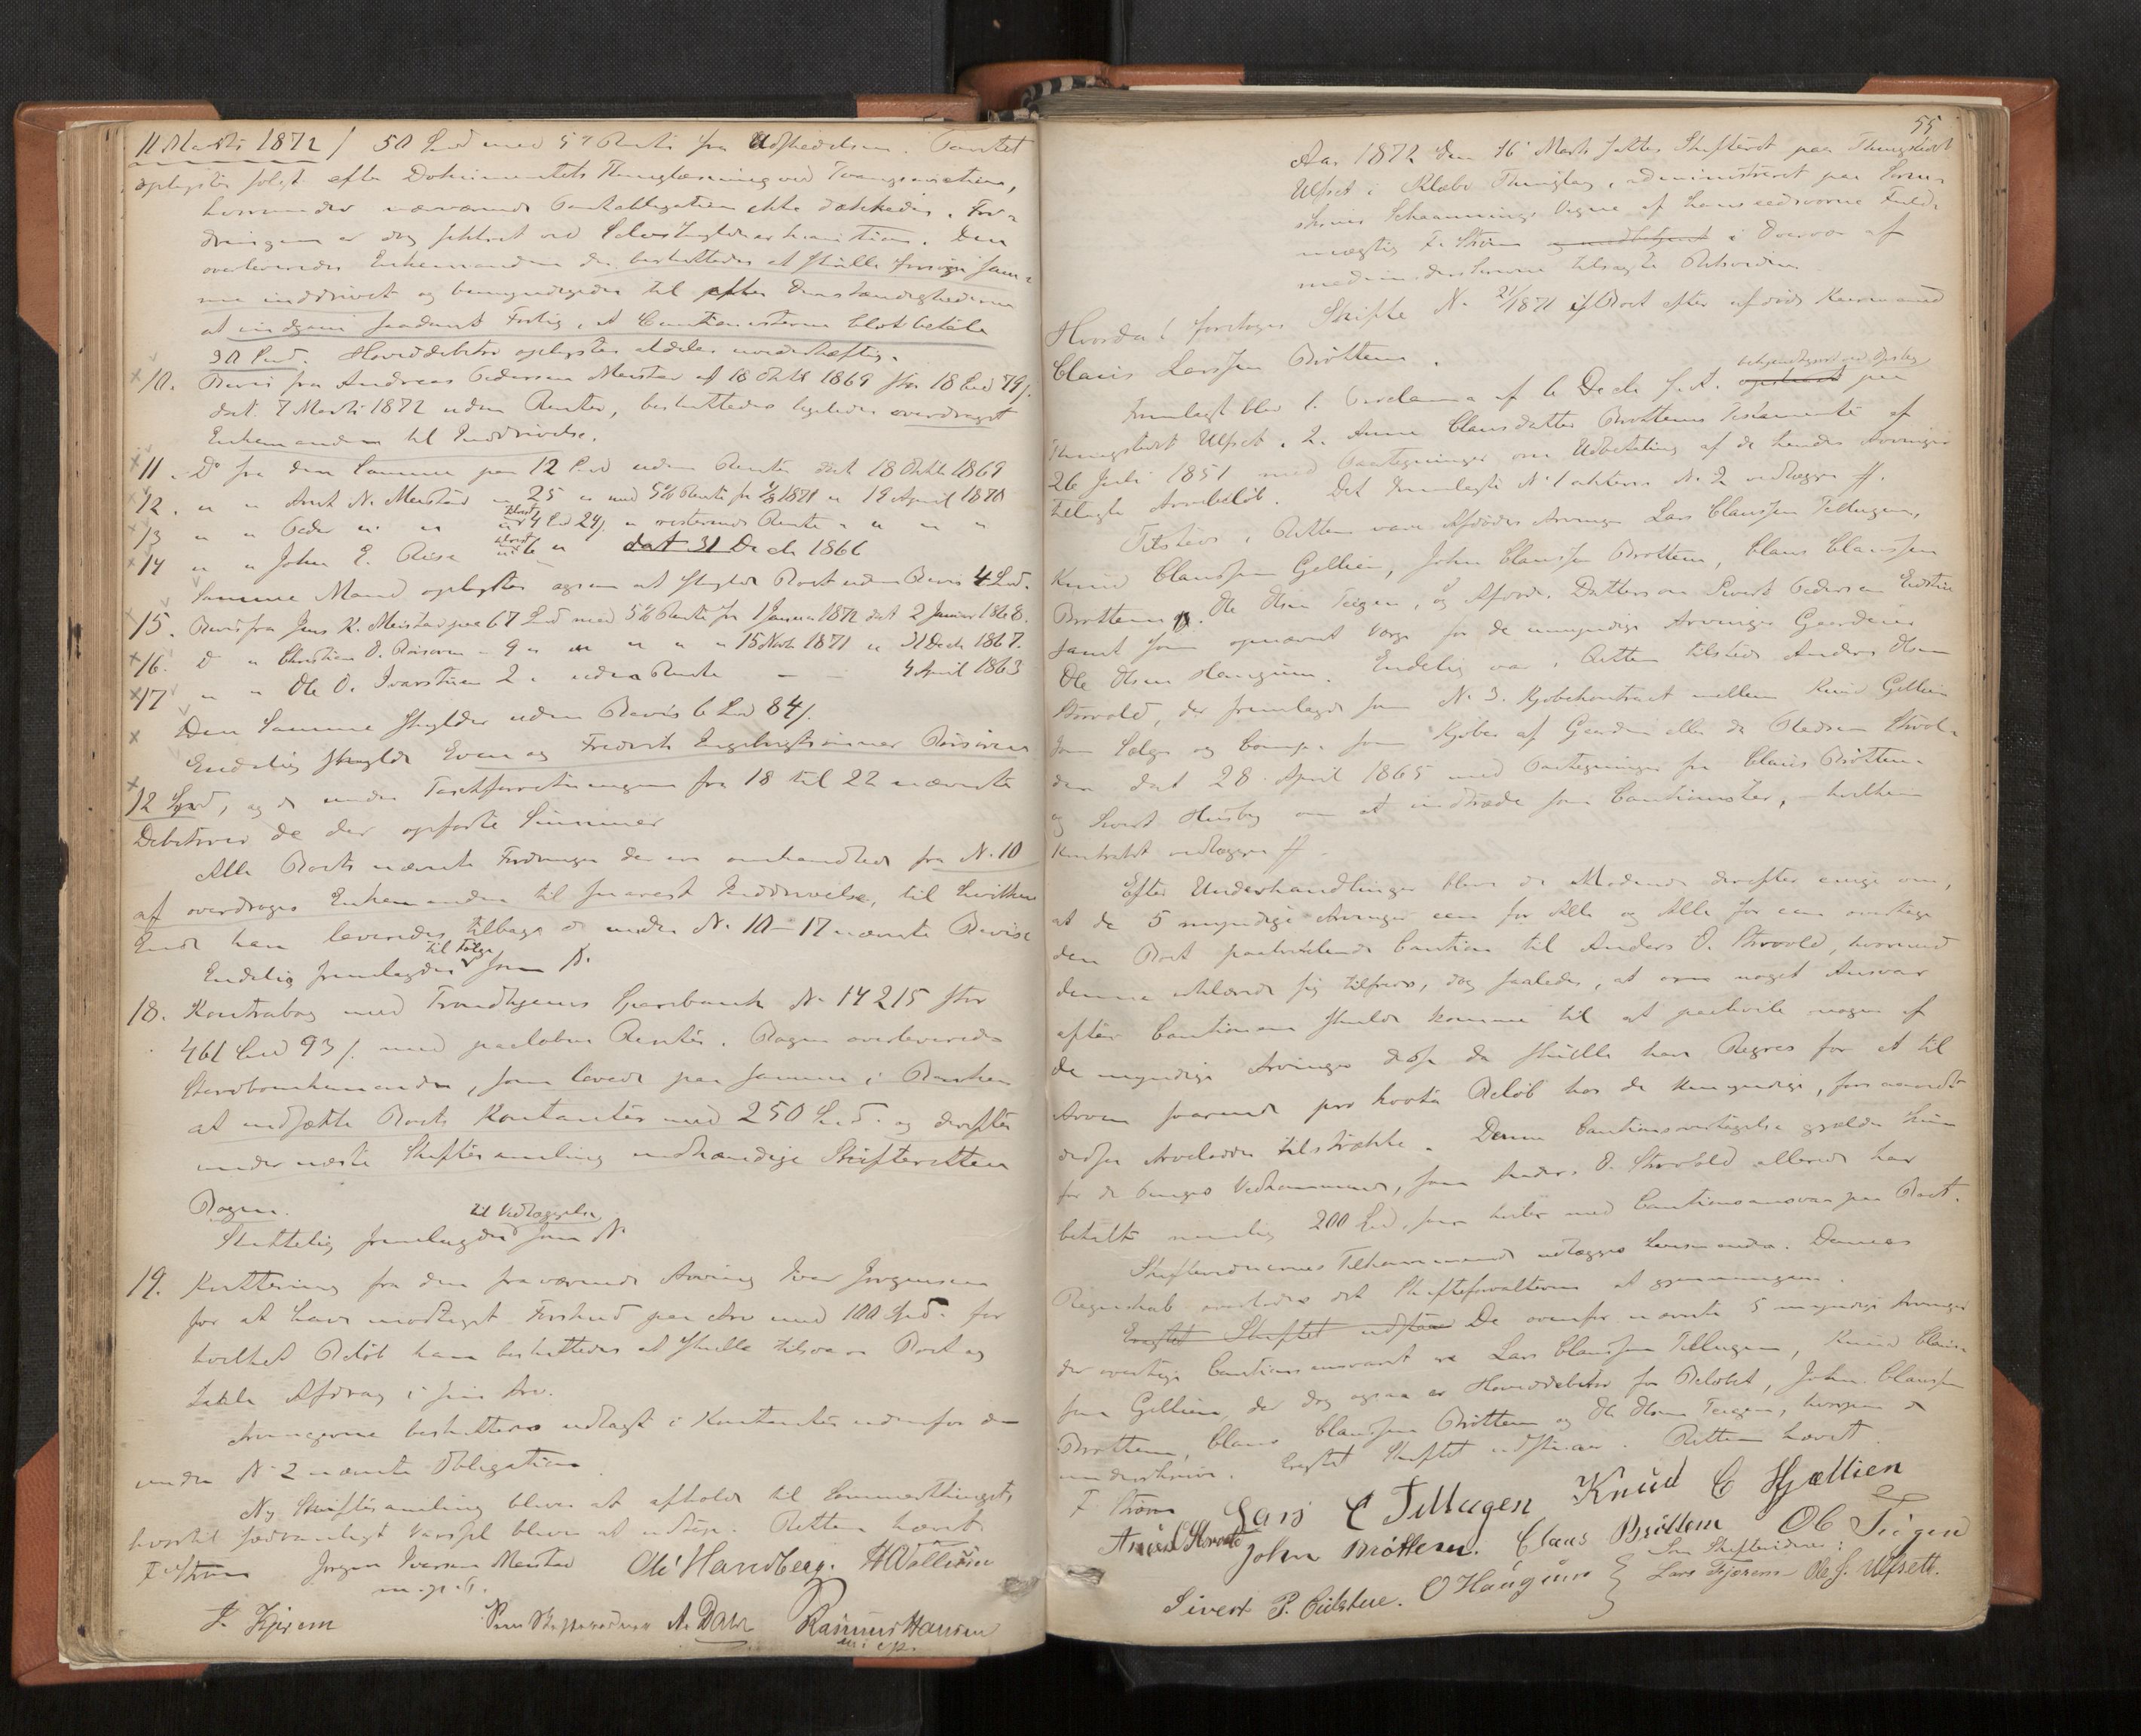 11 Marts 1872 / 50 Spd med 5% Rente fra Udstedelsen. Pantet
oplystes solgt efter Dokumentets Thinglæsning ved Tvangsauction,
hvorunder nærværende Pantobligation ikke dækkedes. For-
dringen er dog sikkret ved Selvskyldnerkaution. Den
overleveredes Enkemanden der besluttedes at skulle forsøge sam-
me inddrivet og bemyndigedes til efter Omstændighederne
at indgaae saadant Forlig, at Cautionisterne blot betale
30 Spd. Hoveddebitor oplystes aldeles uvederhæftig.
10. Bevis fra Andreas Pedersen Meistad af 18 Oktb 1869 stor 18 Spd 79 s.
dat. 7 Marts 1872 uden Renter, besluttedes ligeledes overdraget
Enkemanden til Inddrivelse.
11. Do fra den Samme paa 12 Spd uden Renter dat 18 Oktb 1869
12. " " Arnt N. Meistad " 25 " med 5% Rente fra 1871 " 19 April 1870
13 " " Peder " " 4 Spd 24 s. " resterende Rente " " " "
14 " " John E. Reise " 6 " dat 31 Decb 1866
Samme Mand oplystes ogsaa at skylde Boet uden Bevis 4 Spd.
15. Bevis fra Jens K. Meistad paa 67 Spd med 5% Rente fra 1 Januar 1872 dat 2 Januar 1868.
16. D " Christian O. Roisøren " 9 " " " " " 15 Novb 1871 " 31 Decb 1867.
17 " " Ole O. Ivarstuen 2 " uden Rente - - 4 April 1863
Den Samme skylder uden Bevis 6 Spd 84 s.
Endelig skylder Even og Fredrik Engelbrigtsønner Roisøren
12 Spd, og de under Taxtforretningen fra 18 til 22 nævnte
Debitorer de der opførte Summer
Alle Boets nævnte Fordringer der ere omhandlede fra N. 10
af overdroges Enkemanden til snarest Inddrivelse, til hvilken
Ende han leveredes tilbage de under N. 10-17 nævnte Beviser
Endelig fremlagdes til Følge som N.
18. Kontrabog med Trondhjems Sparebank N. 14215 stor
461 Spd 93 s. med paaløbne Renter. Bogen overleveredes
Stervboenkemanden, som lovede paa samme i Banken
at indsætte Boets Kontanter med 250 Spd. og derefter
under næste Skiftesamling indhændige Skifteretten
Bogen.
Sluttelig fremlagdes til Vedlæggelse som N.
19. Kvittering fra den fraværende Arving Iver Jørgensen
for at have modtaget Forskud paa Arv med 100 Spd. for
hvilket Beløb han besluttedes at skulle tilsvare Boet og
taale Afdrag i sin Arv.
Arvingerne besluttedes udlagt i Kontanter udenfor den
under N. 2 nævnte Obligation.
Ny Skiftesamling bliver at afholde til Sommerthinget,
hvortil sædvanligt Varsel bliver at udstede. Retten hævet
F. Strøm Jørgen Iversen Meistad Ole Handberg. H Vollaun
m. p. P.
J. Kjerem Som Skiftevidner A. Dahl Rasmus Hansen
m. i. p.
55
Aar 1872 den 16 Marts sattes Skifteret paa Thingstedet
Ulset i Klæbo Thinglag, administreret paa Soren-
skriver Schaannings Vegne af hans eedsvorne Fuld-
mægtig F. Strøm i Overvær af
medunderskrevne tilsagte Retsvidner
Hvorda! foretoges Skifte N. 21/1871 i Boet efter afdøde Kaarmand
Claus Larssen Brøttem.
bekjendtgjort ved Opslag
Fremlagt blev 1. Proclama af 6 Decb f. A. paa
Thingstedet Ulset. 2. Anne Clausdatter Brøttems Testamente af
26 Juli 1851 med Paategninger om Udbetaling af de hendes Arvinger
tillagte Arvebeløb. Det fremlagte N. 1 akteres N. 2 vedlægges ff.
Tilstede i Retten vare Afdødes Arvinger Lars Claussen Tellugen,
Knud Claussen Gellien, John Claussen Brøttem, Claus Claussen
Brøttem, Ole Olsen Teigen, og Afdødes Dattersøn Sivert Pedersen Eidstue
samt som opnævnt Værge for de umyndige Arvinger Gaardmand
Ole Olsen Haugum. Endelig var i Retten tilstede Anders Olsen
Storvold, der fremlagde som N. 3. Kjøbekontrakt mellem Knud Gellien
som Sælger og Comp. som Kjøber af Gaarden eller de Pladsen Storvol-
den dat 28 April 1865 med Paategninger fra Claus Brøttem
og Sivert Huseby om at indtræde som Cautionister, hvilken
Kontrakt vedlægges ff.
Efter Underhandlinger bleve de Mødende derefter enige om,
at de 5 myndige Arvinger een for Alle og Alle for een overtage
den Boet paahvilende Caution til Anders O. Storvold, hvormed
denne erklærede sig tilfreds, dog saaledes, at om noget Ansvar
efter Cautionen skulde komme til at paahvile nogen af
de myndige Arvinger disse da skulle have Regres for et til
Arven svarende pro kvota Beløb hos de umyndige, forsaavidt
disses Arvelodder tilstrække. Denne Cautionsovertagelse gjælder kun
for de Penges Vedkommende, som Anders O. Storvold allerede har
betalt nemlig 200 Spd, som hviler med Cautionsansvar paa Boet.
Skiftevidnernes Tilkommende udlægges Lensmanden. Dennes
Regnskab overlodes det Skifteforvalteren at gjennemgaae.
Eragtet Skiftet udstaaer De ovenfor nævnte 5 myndige Arvinger
der overtage Cautionsansvaret ere Lars Claussen Tellugen, Knud Claus-
sen Gellien, der dog ogsaa er Hoveddebitor for Beløbet, John Claussen
Brøttem, Claus Claussen Brøttem og Ole Olsen Teigen, hvorpaa de
underskrive. Eragtet Skiftet udstaaer. Retten hævet.
F. Strøm Lars C Tellugen Knud C Hjællien
Anders Storvold John Brøttem. Claus Brøttem Ole Teigen
Som Skiftevidner:
Sivert P. Eidstue. O Haugum Lars Fjærem Ole J. Ulsett.